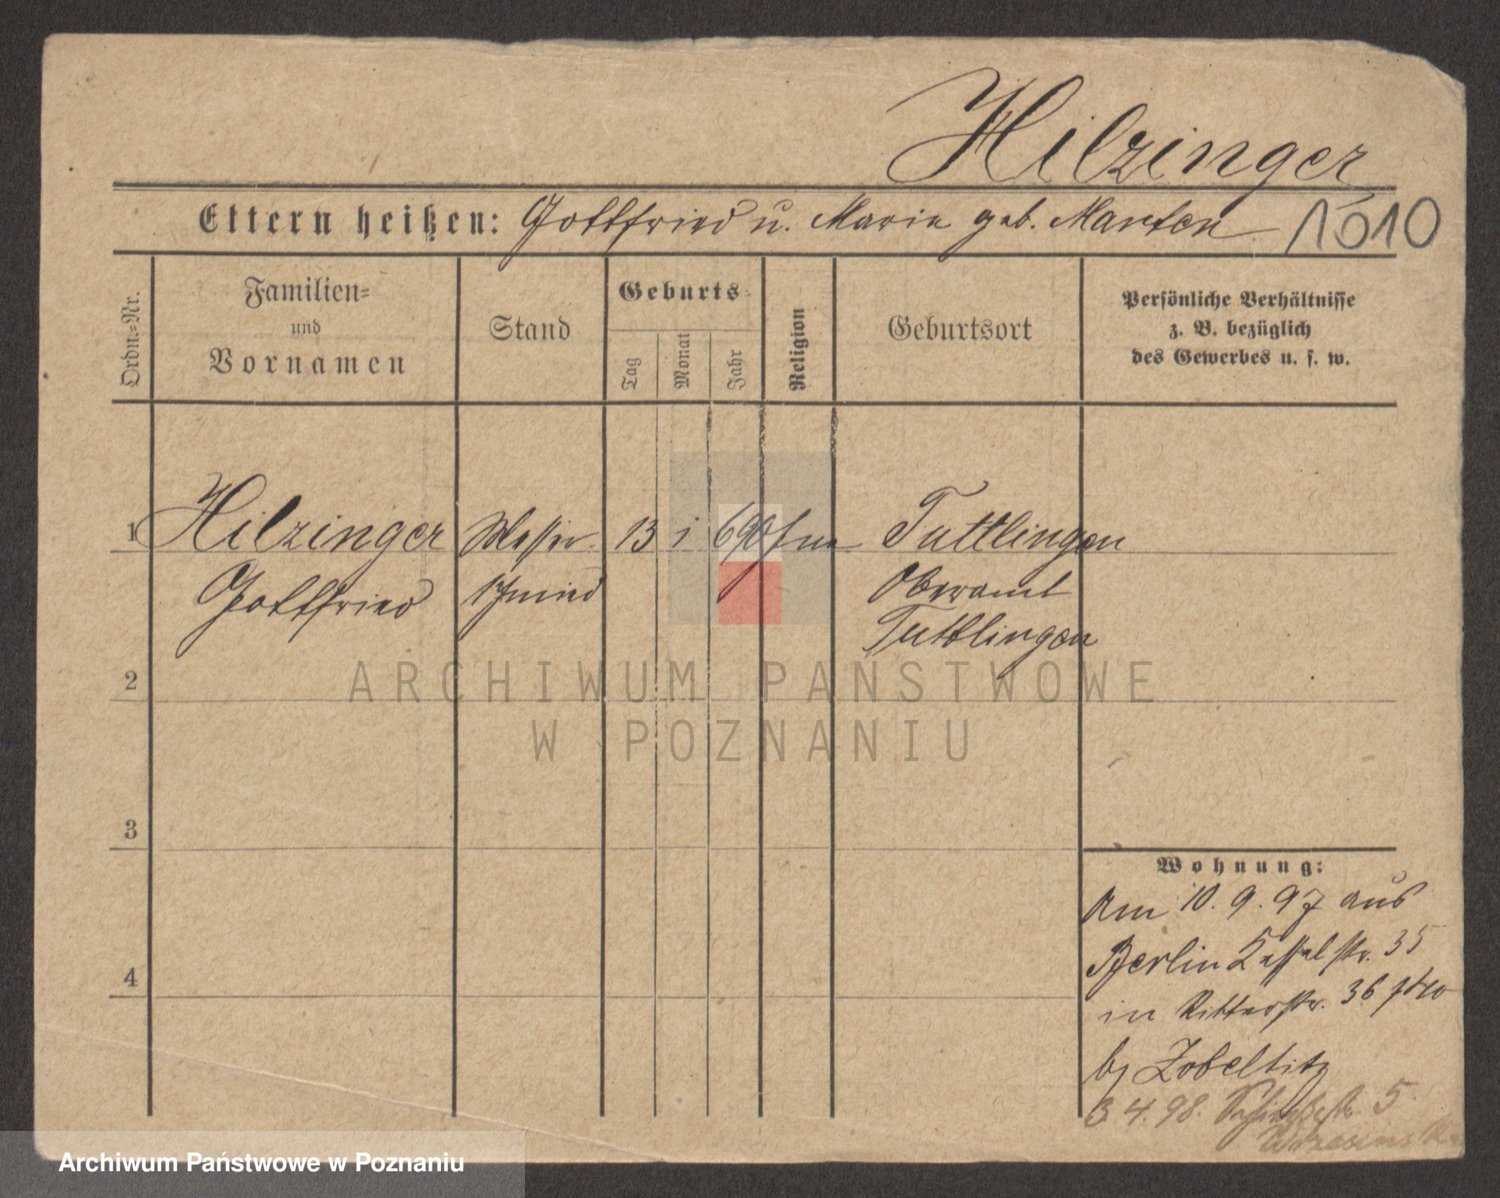 Hilzinger
Eltern heißen: Gottfried u. Marie geb. Marten 1010
Ordn.-Nr. Familien- und Vornamen Stand Geburts- Tag Monat Jahr Religion Geburtsort Persönliche Verhältnisse z. B. bezüglich des Gewerbes u. s. w.
1 Hilzinger Messer- 13 1 69 Tuttlingen
Gottfried schmied Oberamt
Tuttlingen
ARCHIWUM PAŃSTWOWE
2
W POZNANIU
3
Wohnung:
Am 10. 9. 97 aus
Berlin Kesselstr. 35
4
in Ritterstr. 36
bj Zobeltitz
3 4. 98. 5
Archiwum Państwowe w Poznaniu